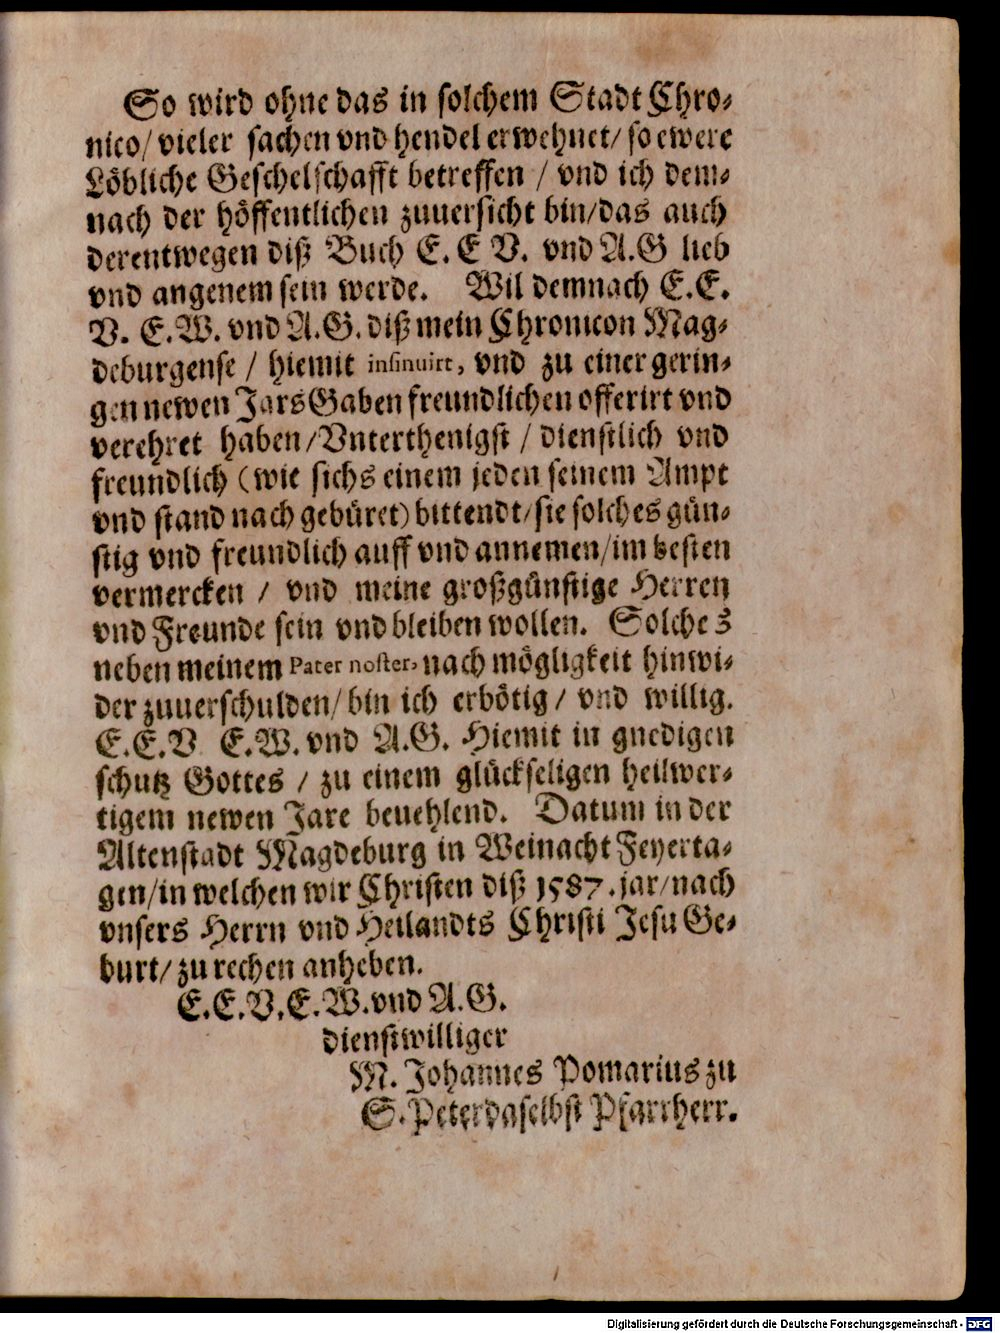 So wird ohne das in solchem Stadt Chro-
nico/ vieler sachen vnd hendel erwehnet/ so ewere
Löbliche Geschelschafft betreffen / vnd ich dem-
nach der höffentlichen zuuersicht bin/das auch
derentwegen diß Buch E. E V. vnd A.G lieb
vnd angenem sein werde. Wil demnach E.E.
V. E.W. vnd A.G. diß mein Chronicon Mag-
deburgense / hiemit insinuirt, vnd zu einer gerin-
gen newen Jars Gaben freundlichen offerirt vnd
verehret haben/Vnterthenigst / dienstlich vnd
freundlich (wie sichs einem jeden seinem Ampt
vnd stand nach gebüret) bittendt/ sie solches gün-
stig vnd freundlich auff vnd annemen/im besten
vermercken / vnd meine großgünstige Herren
vnd Freunde sein vnd bleiben wollen. Solches
neben meinem Pater noster, nach mögligkeit hinwi-
der zuuerschulden/ bin ich erbötig/ vnd willig.
E.E.V E.W. vnd A.G. Hiemit in gnedigen
schutz Gottes / zu einem glückseligen heilwer-
tigem newen Jare beuehlend. Datum in der
Altenstadt Magdeburg in Weinacht Feyerta-
gen/in welchen wir Christen diß 1587. jar/nach
vnsers Herrn vnd Heilandts Christi Jesu Ge-
burt/ zu rechen anheben.
E.E.V.E.W.vnd A.G.
dienstwilliger
M. Johannes Pomarius zu
S. Peter daselbst Pfarrherr.
Digitalisierung gefördert durch die Deutsche Forschungsgemeinschaft - DFG